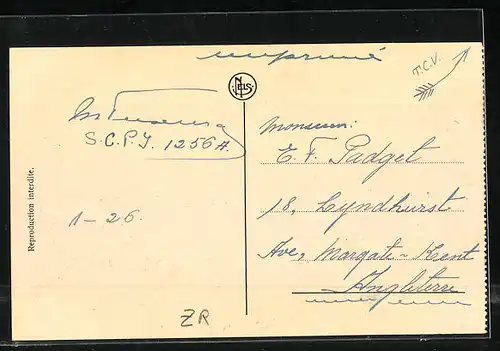 imprimé
T.C.V.
NELS
S.C.P.J. 1256A.
1-26.
Reproduction interdite.
Monsieur:
E. F. Padget
18, Lyndhurst
Ave, Margate-Kent
Angleterre
ZR